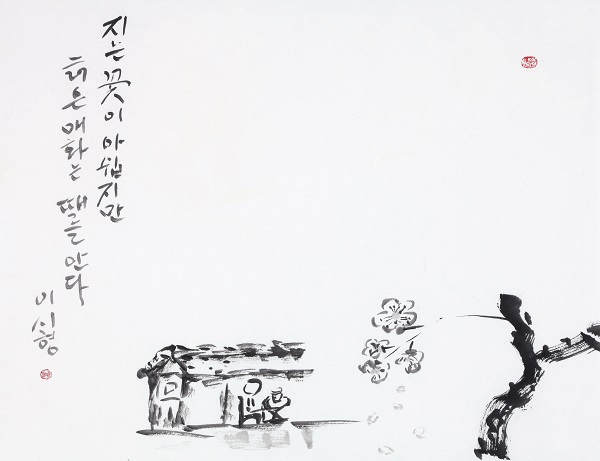 지는 꽃이 아쉽지만
늙은 매화는 때를 안다
이시형